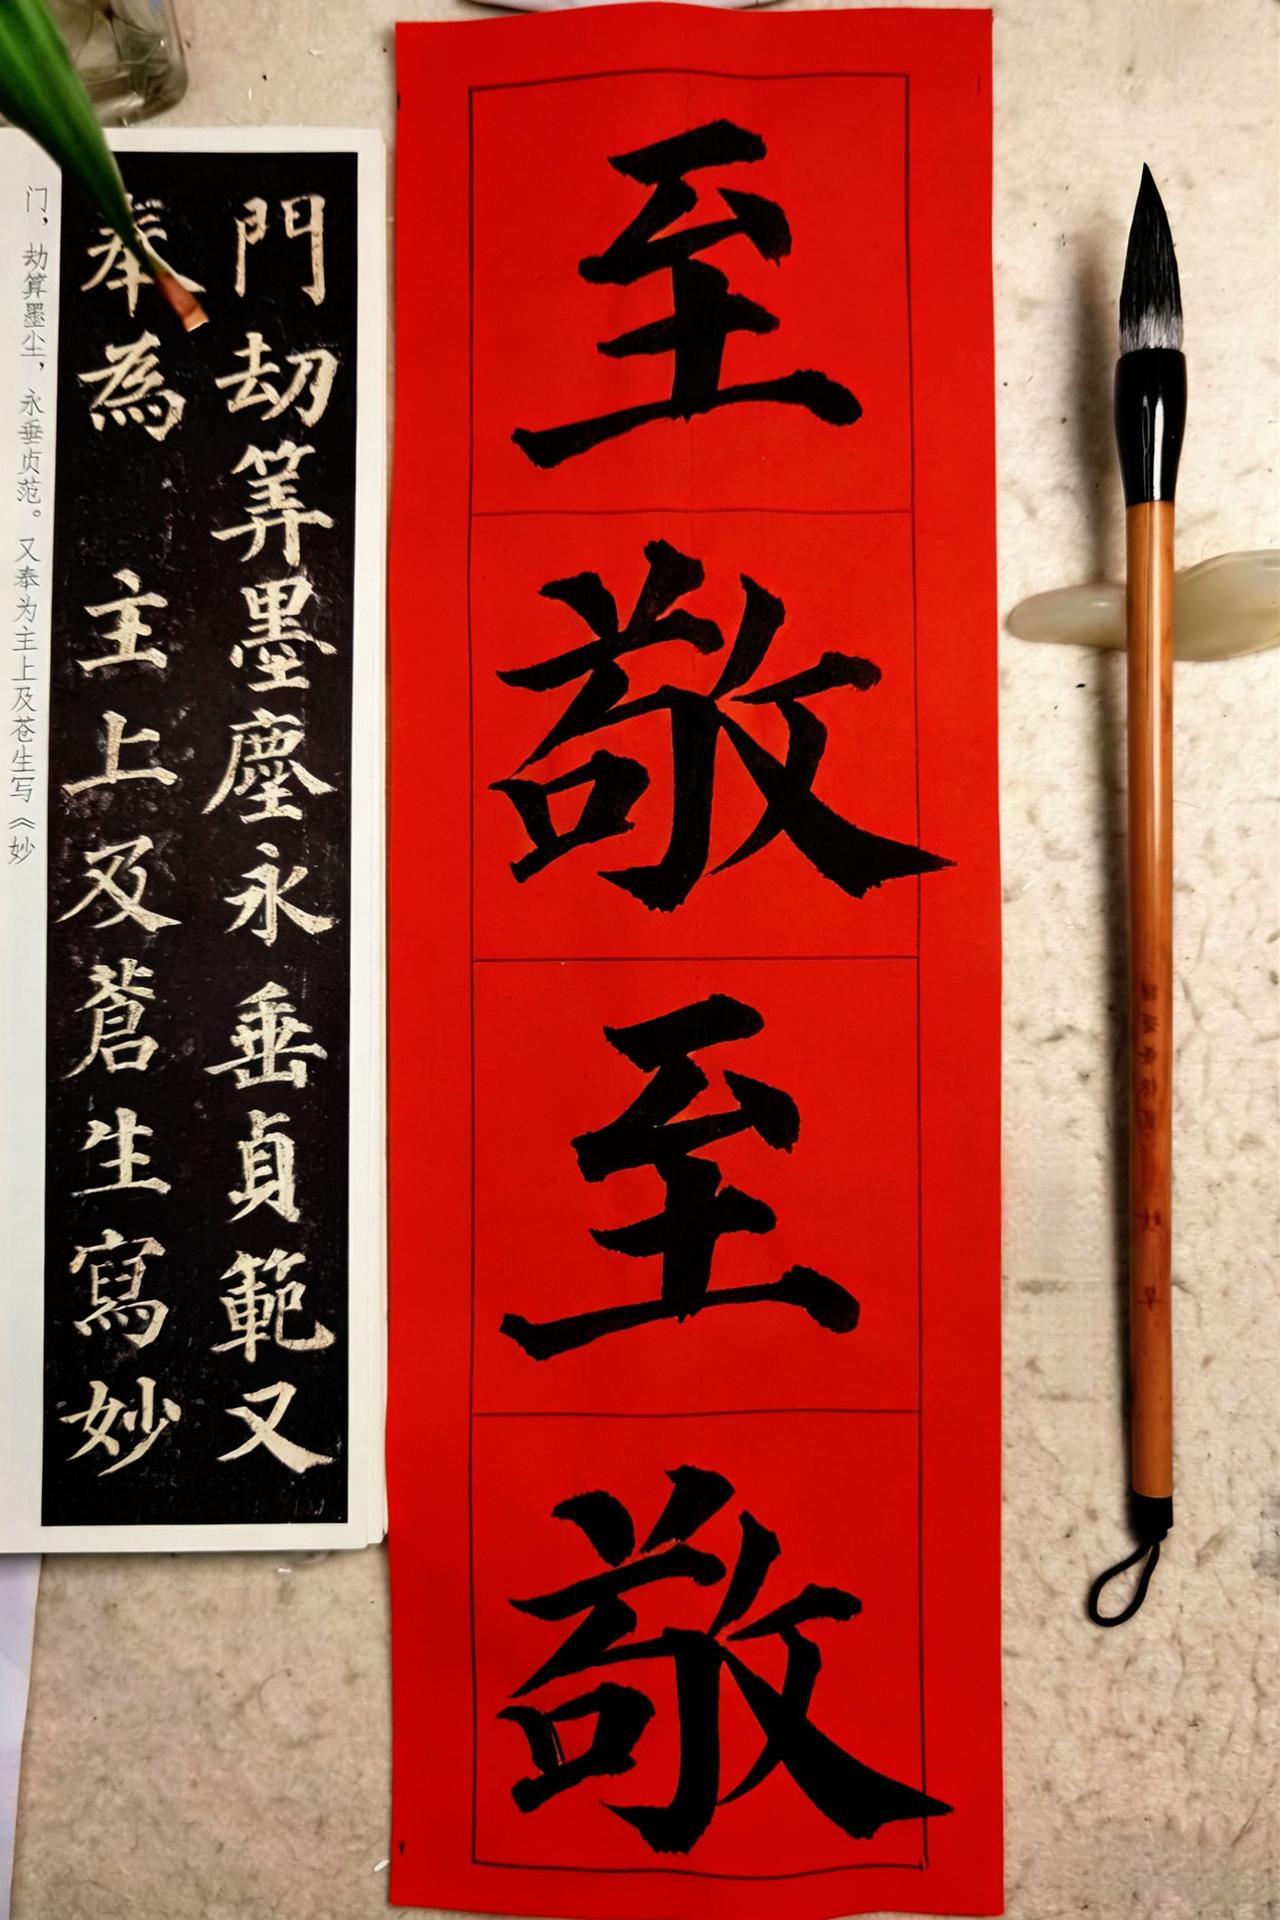 至敬至敬
門劫筭墨塵永垂貞範又
奉為 主上及蒼生寫妙
门，劫算墨尘，永垂贞范。又奉为主上及苍生写《妙